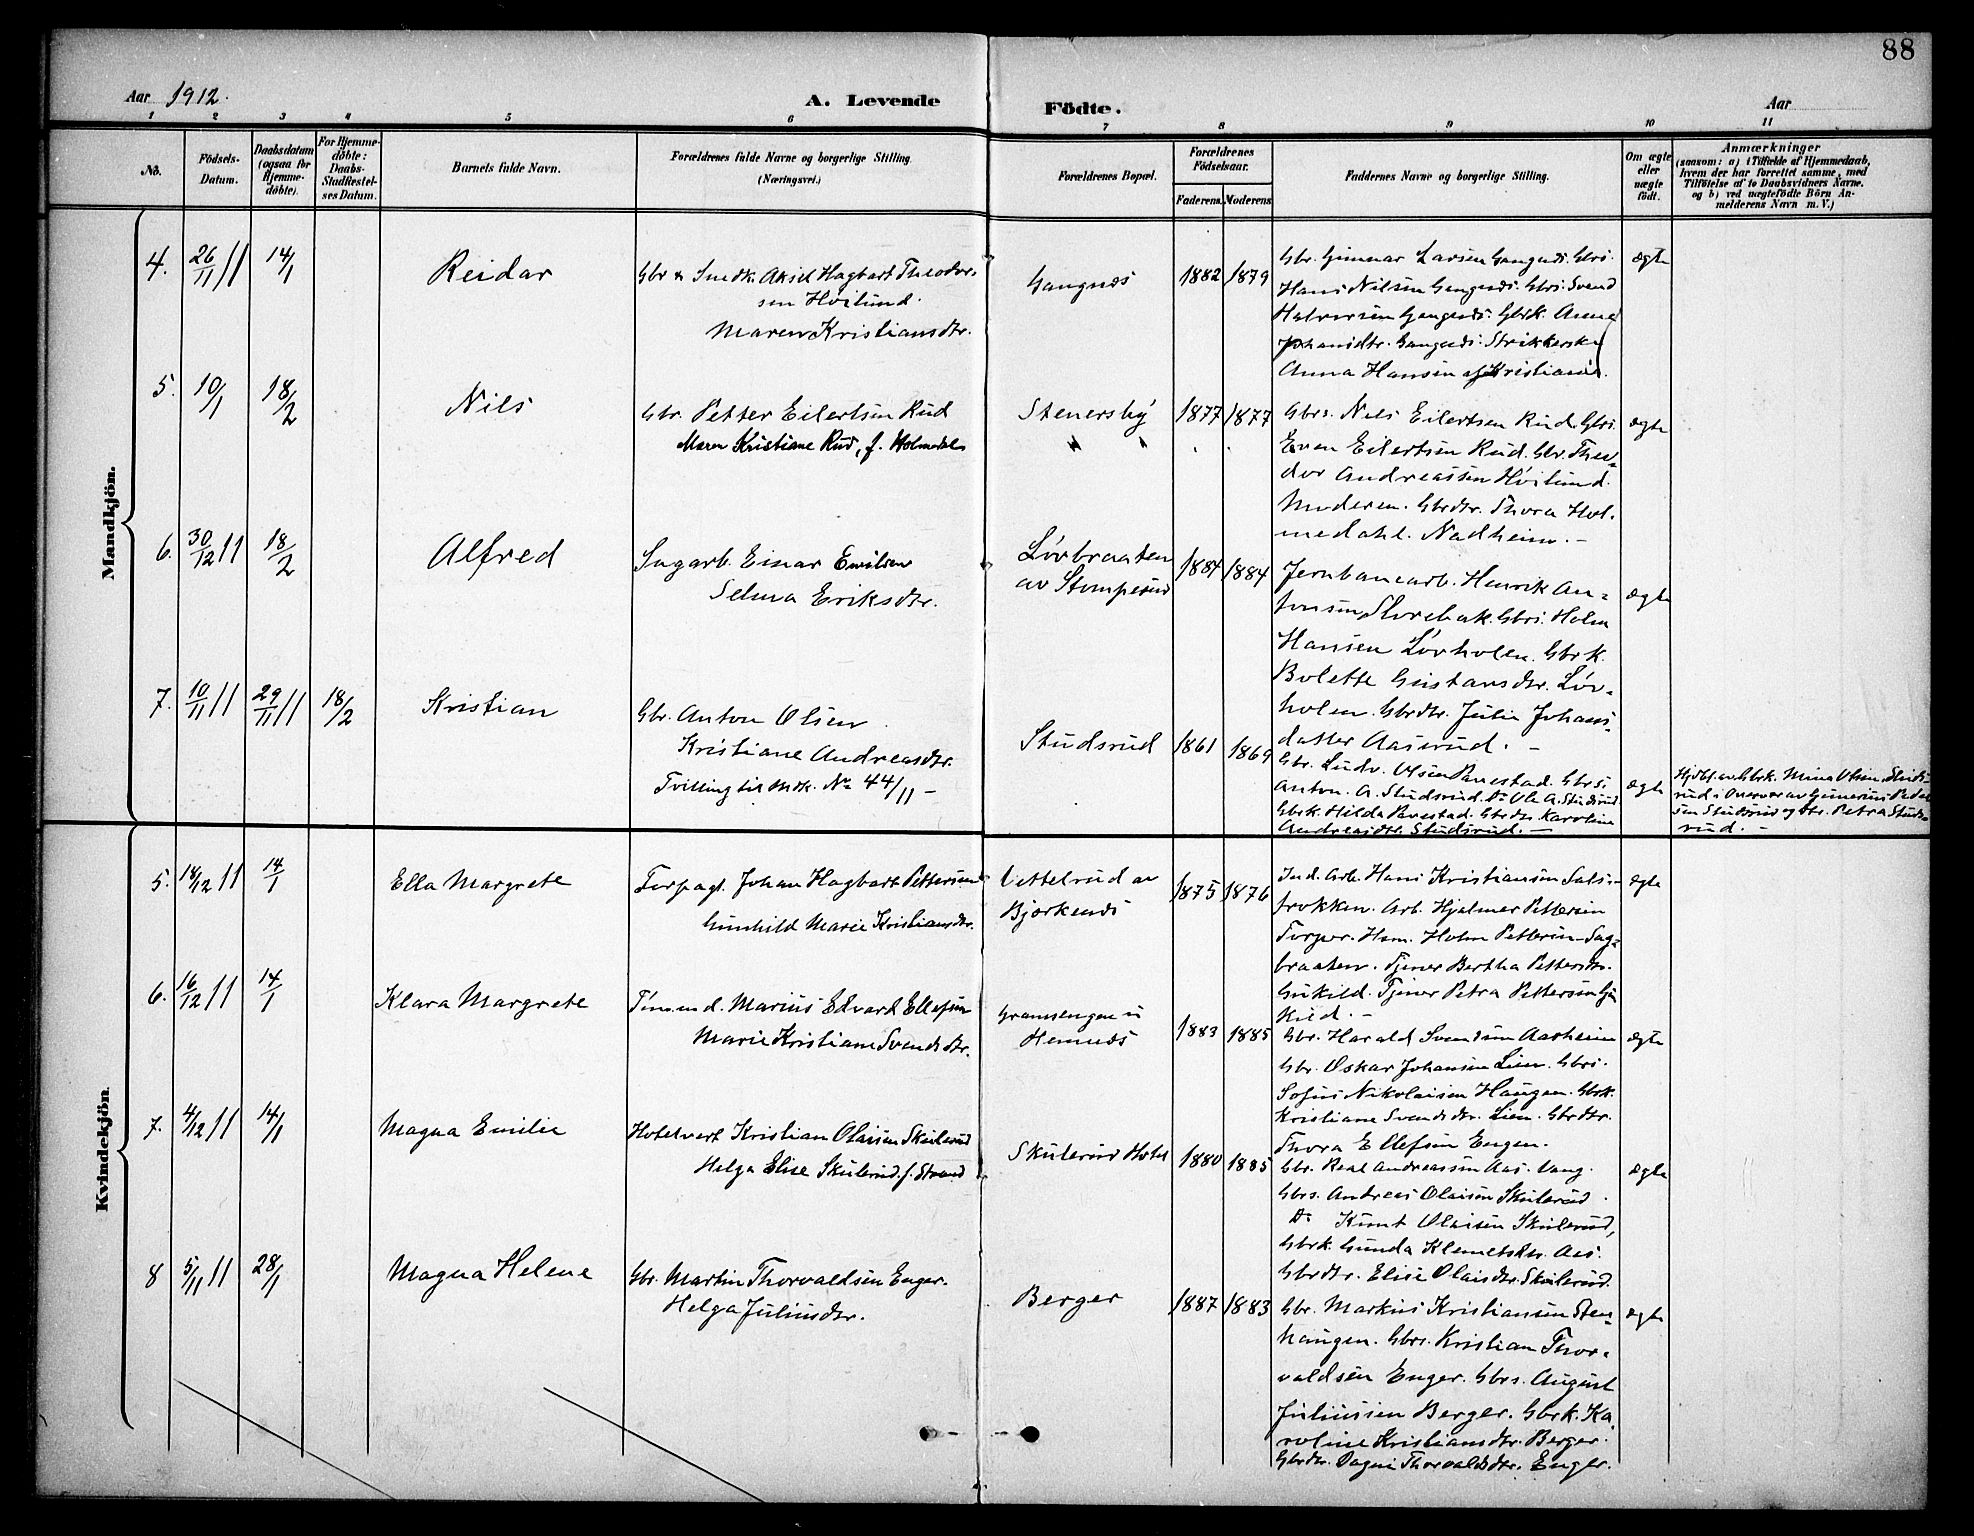 88
Aar 1912.
A. Levende Födte.
Aar
1 2 3 4 5 6 7 8 9 10 11
No.
Födsels-
Datum.
Daabsdatum
(ogsaa for
Hjemme-
döbte).
For Hjemme-
döbte:
Daabs-
Stadfæstel-
ses Datum.
Barnets fulde Navn.
Forældrenes fulde Navne og borgerlige Stilling.
(Næringsvei.)
Forældrenes Bopæl.
Forældrenes
Födselsaar.
Faderens. Moderens.
Faddernes Navne og borgerlige Stilling.
Om ægte
eller
uægte
födt.
Anmærkninger
(saasom: a) i Tilfælde af Hjemmedaab,
hvem der har forrettet samme, med
Tilföielse af to Daabsvidners Navne.
og b) ved uægtefödte Börn An-
melderens Navn m. V.)
Mandkjön.
4. 26/11 11 14/1 Reidar
Gbr & Snedk. Aksel Hagbart Theodor-
sen Höilund.
Maren Kristiansdtr.
Gangnæs 1882 1879
Gbr. Gunnar Larsen Gangnæs. Gbrs.
Hans Nilsen Gangnæs. Gbrs. Svend
Halvorsen Gangnæs. Gbrk. Anna
Johansdtr. Gangnæs. Strikkerske
Anna Hansen af Kristiania.
ægte
5. 10/1 18/2 Nils
Gbr. Petter Eilertsen Rud
Maren Kristiane Rud, f. Holmedal
Stenersby 1877 1877
Gbrs. Nils Eilertsen Rud. Gbrs.
Even Eilertsen Rud. Gbr. Theo-
dor Andreassen Höilund.
Moderen. Gbrdtr. Thora Hol-
medahl. Nadheim. -
ægte
6. 30/12 11 18/2 Alfred
Sagarb. Einar Emilsen
Selma Eriksdtr.
Lövbraaten
av Stomperud
1884 1884
Jernbanearb. Henrik An-
tonsen Storebak. Gbrs. Holm
Hansen Lövholen. Gbrk.
Bolette Gustavsdtr. Löv-
holen. Gbrdtr. Julie Johans-
datter Aaserud. -
ægte
7. 10/11 11 29/11 11 18/2 Kristian
Gbr. Anton Olsen
Kristiane Andreasdtr.
Tvilling til mdk. No 44/11 -
Studsrud 1861 1869
Gbr. Ludv. Olsen Pavestad. Gbrs.
Anton. A. Studsrud. Do Ole A. Studsrud
Gbrk. Hilda Pavestad. Gbrdtr. Karoline
Andreasdtr. Studsrud. -
ægte
Hjdbt. av Gbrk. Mina Olsen Studs-
rud i Overvær av Gunerius Peder-
sen Studsrud og Gbr. Petra Studs-
rud. -
Kvindekjön.
5. 14/12 11 14/1 Ella Margrete
Torpagt. Johan Hagbart Pettersen
Gunhild Marie Kristiansdtr.
Vettelrud av
Bjørkenæs
1875 1876
Ind. Arb. Hans Kristiansen Sals-
brokken. Arb. Hjalmar Pettersen
Torper. Hsm. Holm Pettersen Sag-
braaten. Tjener Bertha Pettersdtr.
Gukild. Tjener Petra Pettersen Gu-
kild. -
ægte
6. 16/12 11 14/1 Klara Margrete
Tömmd. Marius Edvard Ellefsen
Marie Kristiane Svendsdtr.
Gransengen u
Hemnæs
1883 1885
Gbr. Harald Svendsen Aasheim
Gbr. Oskar Johansen Lien. Gbrs.
Sofus Nikolaisen Haugen. Gbrk.
Kristiane Svendsdtr. Lien. Gbrdtr.
Thora Ellefsen Engen.
ægte
7. 4/12 11 14/1 Magna Emilie
Hotelvert Kristian Olaisen Skulerud
Helga Elise Skulerud f. Strand
Skulerud Hotel 1880 1885
Gbr. Andreassen Aas.
Gbrs. Andreas Olaisen Skulerud
Do Knut Olaisen Skulerud,
Gbrk. Gunda Klemetsdtr. Aas.
Gbrdtr. Elise Olaisdtr. Skulerud.
ægte
8 5/11 11 28/1 Magna Helene
Gbr. Martin Thorvaldsen Enger.
Helga Juliusdtr.
Berger 1887 1883
Gbr. Markus Kristiansen Sten-
haugen. Gbrs. Kristian Thor-
valdsen Enger. Gbrs. August
Juliussen Berger. Gbrk. Ka-
roline Kristiansdtr. Berger.
Gbrdtr. Dagni Thorvaldsdtr. Enger.
ægte